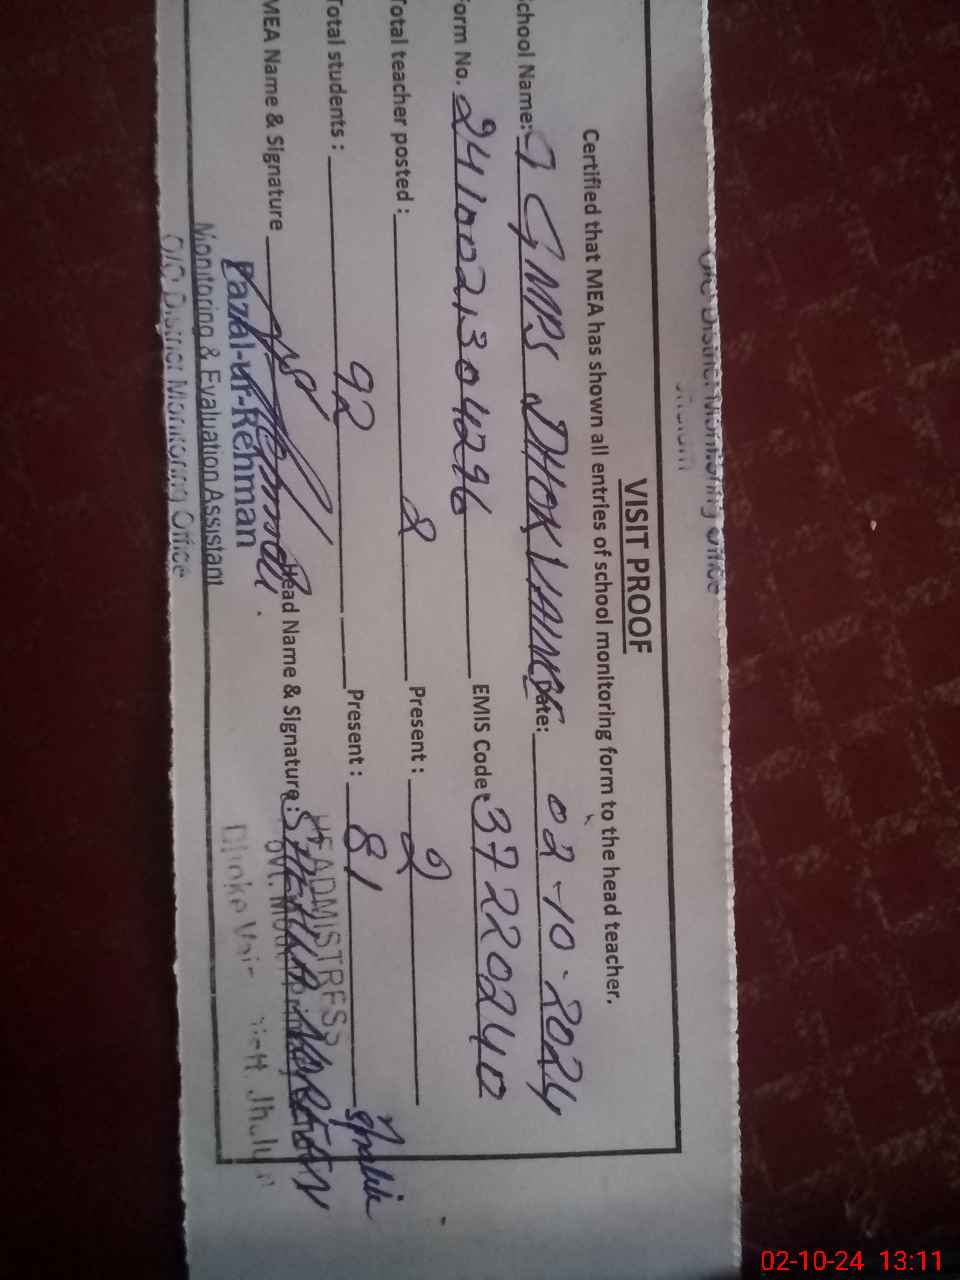 O/O District Monitoring Office
Jhelum
VISIT PROOF
Certified that MEA has shown all entries of school monitoring form to the head teacher.
School Name: GGMPS DHOK VAINS Date: 02-10-2024
Form No. 241002,304296 EMIS Code: 37220240
Total teacher posted: 2 Present: 2
Total students: 92 Present: 81
MEA Name & Signature Head Name & Signature:
HEADMISTRESS
Fazal-ur-Rehman
Monitoring & Evaluation Assistant
O/O District Monitoring Office
02-10-24 13:11